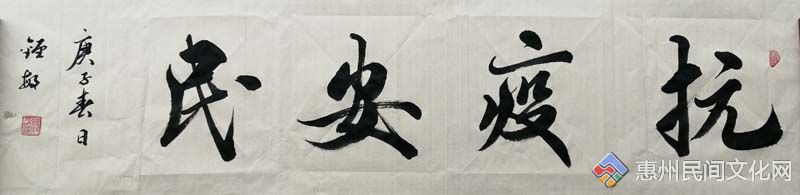 抗疫安民
庚子春日
惠州民间文化网